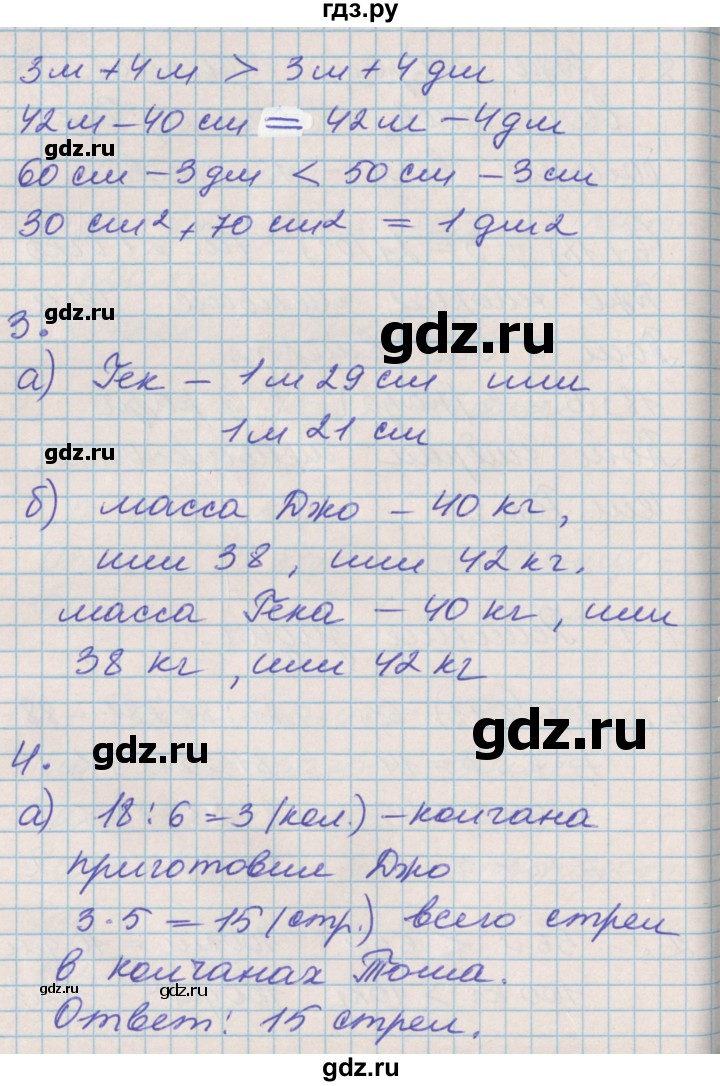 гдз.ру
3м + 4м > 3м + 4дм
42м – 40 см = 42м – 4дм
gdz.ru
60 см – 3дм < 50 см – 3 см
30 см2 + 70 см2 = 1 дм2
gdz.ru
3.
gdz.ru
а) Гек – 1м 29 см или
1м 21 см
gdz.ru
б) масса Джо – 40 кг,
или 38, или 42 кг.
масса Гека – 40 кг, или
38 кг, или 42 кг
gdz.ru
4.
gdz.ru
а) 18 : 6 = 3 (кол.) – колчана
приготовил Джо
3 · 5 = 15 (стр.) всего стрел
в колчанах Тома.
gdz.ru
gdz.ru
Ответ: 15 стрел.
gdz.ru